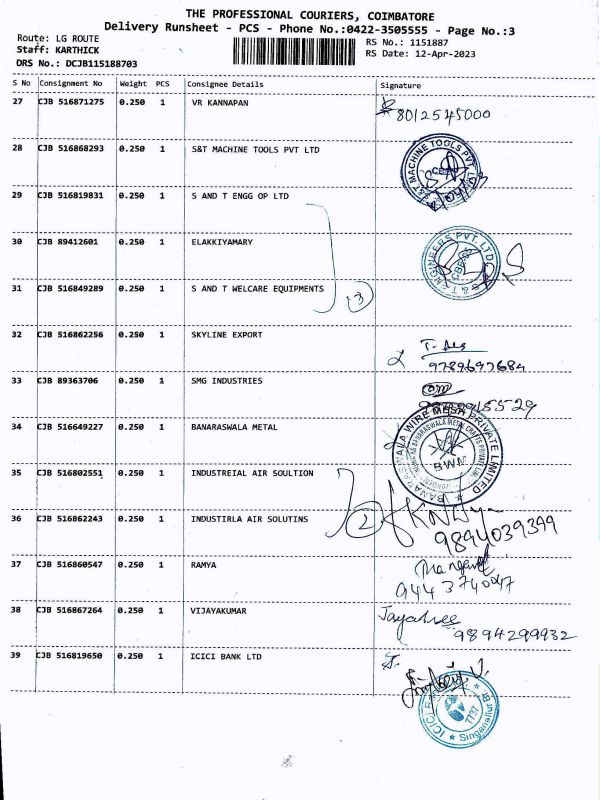 THE PROFESSIONAL COURIERS, COIMBATORE
Delivery Runsheet - PCS - Phone No.:0422-3505555 - Page No.:3
Route: LG ROUTE
RS No.: 1151887
Staff: KARTHICK
RS Date: 12-Apr-2023
DRS No.: DCJB115188703
S No Consignment No Weight PCS Consignee Details Signature
27 CJB 516871275 0.250 1 VR KANNAPAN
8012545000
28 CJB 516868293 0.250 1 S&T MACHINE TOOLS PVT LTD
S&T MACHINE TOOLS PVT. LTD.
29 CJB 516819831 0.250 1 S AND T ENGG OP LTD
30 CJB 89412601 0.250 1 ELAKKIYAMARY
S & T ENGINEERS PVT. LTD.
CBE
31 CJB 516849289 0.250 1 S AND T WELCARE EQUIPMENTS
3
32 CJB 516862256 0.250 1 SKYLINE EXPORT
9789697684
33 CJB 89363706 0.250 1 SMG INDUSTRIES
15529
34 CJB 516649227 0.250 1 BANARASWALA METAL
BANARASWALA WIRE MESH PRIVATE LIMITED
BWM
35 CJB 516802551 0.250 1 INDUSTREIAL AIR SOULTION
36 CJB 516862243 0.250 1 INDUSTIRLA AIR SOLUTINS
2
9894039399
37 CJB 516860547 0.250 1 RAMYA
9443740047
38 CJB 516867264 0.250 1 VIJAYAKUMAR
Jayashree
9894299932
39 CJB 516819650 0.250 1 ICICI BANK LTD
ICICI
7737
Singanallur Br